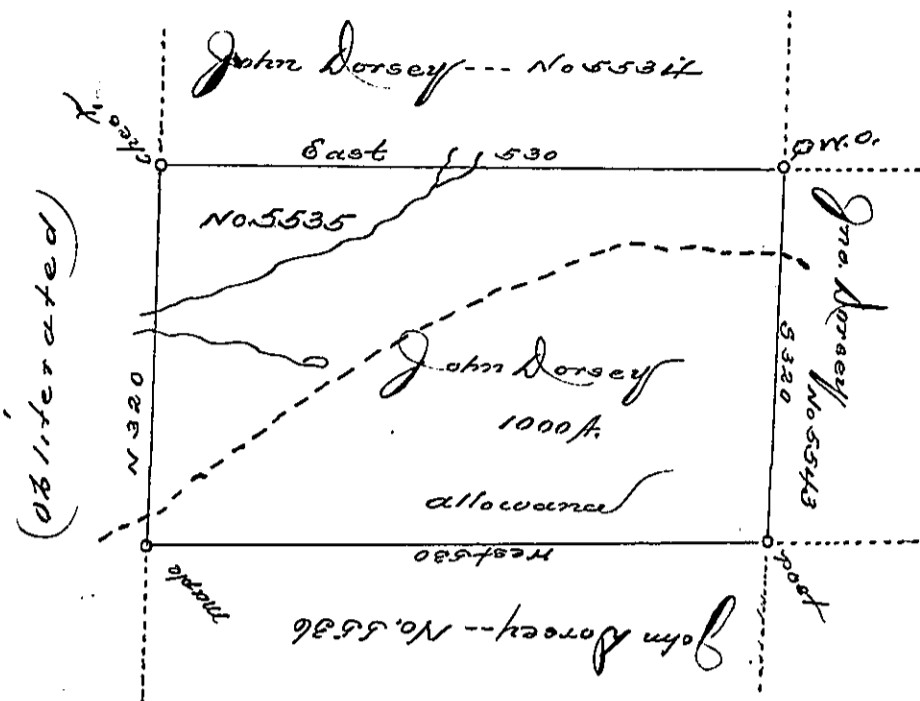 John Dorsey --- No 5534
East 530
W.O.
No. 5535
(obliterated)
N 320
John Dorsey
1000 A.
allowance
S 320
Jno. Dorsey
No 5543
West 530
maple
Post
John Dorsey -- No. 5536